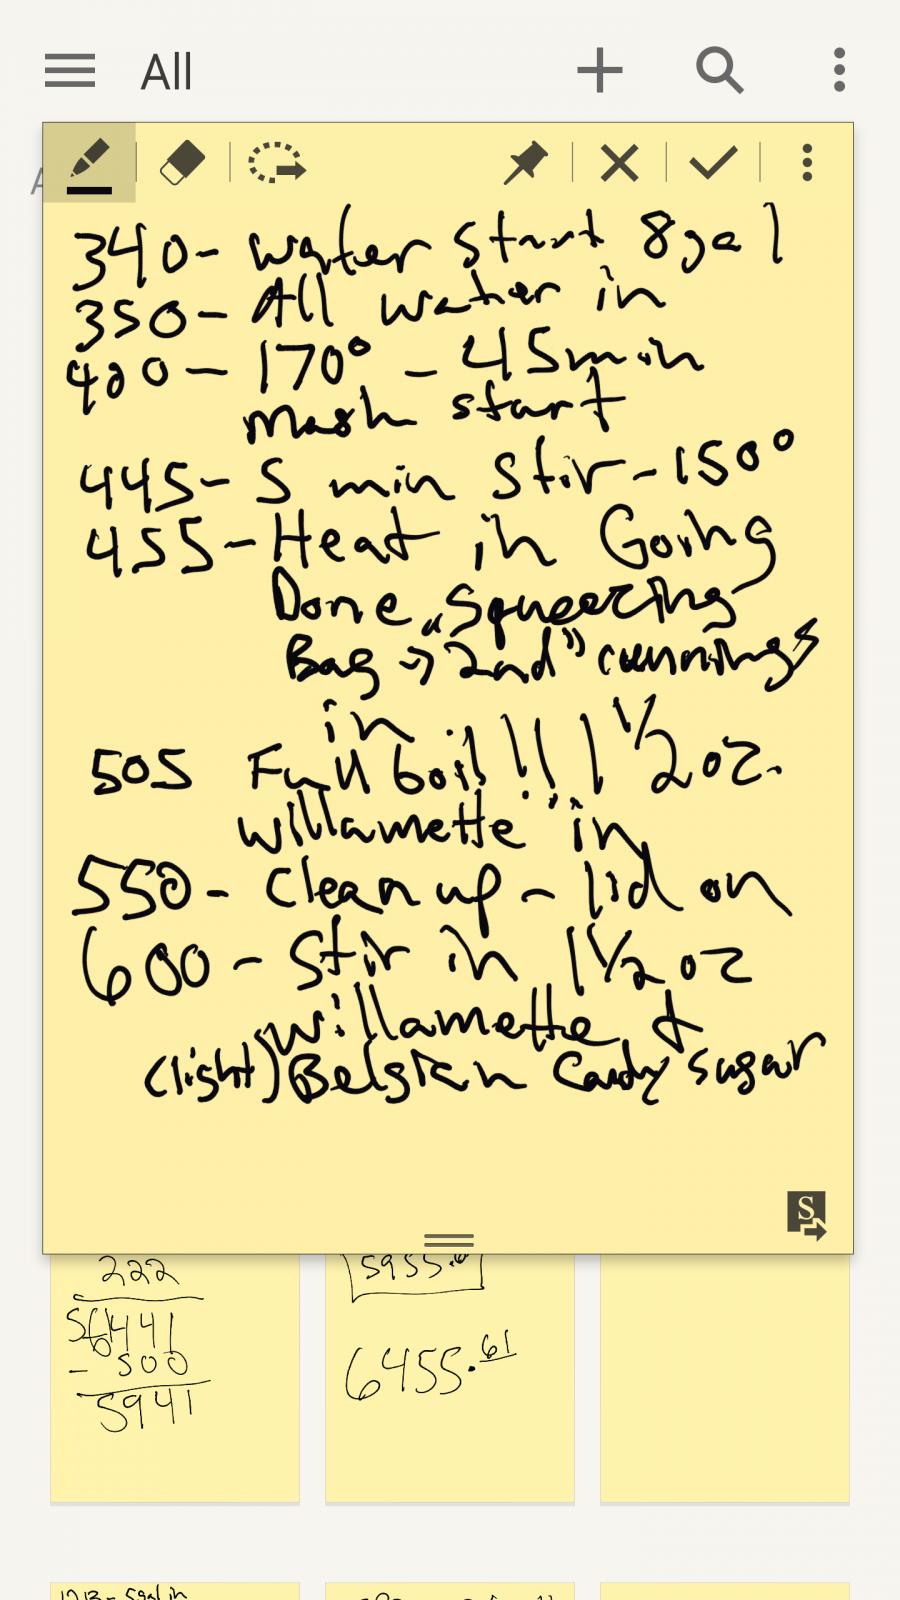 All
340- water start 8gal
350- All water in
400- 170° - 45min
mash start
445- 5 min stir-150°
455- Heat in Going
Done "Squeezing
Bag → 2nd" runnings
in
505 Full boil!!! 1 1/2 oz.
willamette in
550- clean up - lid on
600- Stir in 1 1/2 oz
willamette &
(light) Belgian Candy sugar
S
222
6441
- 500
5941
5955.61
6455.61